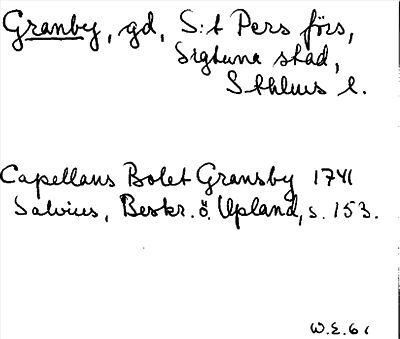 Granby, gd, S:t Pers förs,
Sigtuna stad,
Sthlms l.
Capellans Bolet Gransby 1741
Salvius, Beskr. ö. Upland, s. 153.
W.E. 61